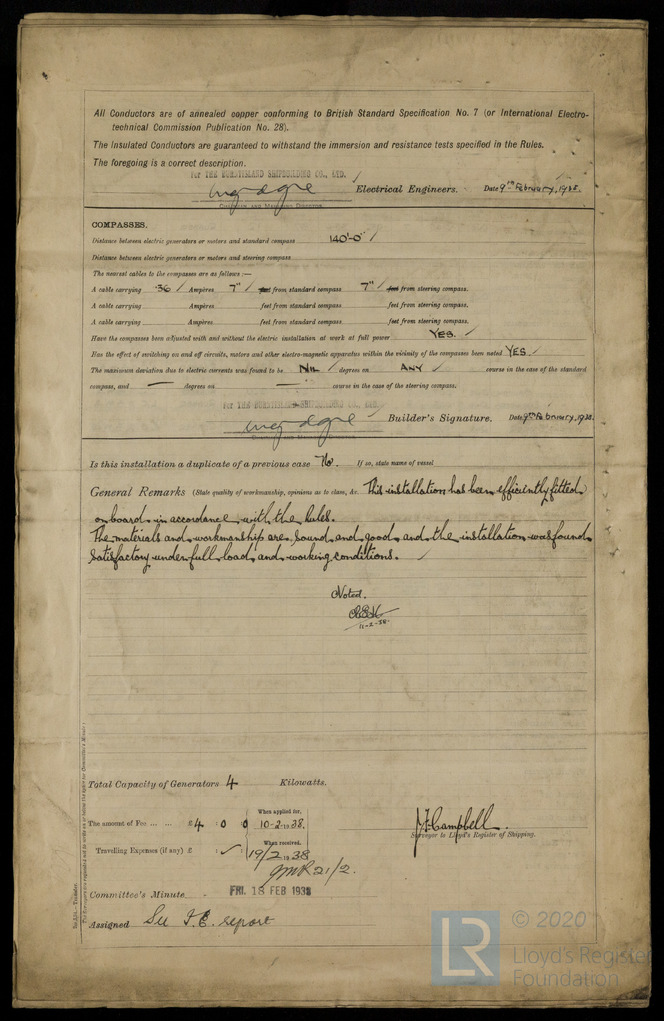 All Conductors are of annealed copper conforming to British Standard Specification No. 7 (or International Electro-
technical Commission Publication No. 28).
The Insulated Conductors are guaranteed to withstand the immersion and resistance tests specified in the Rules.
The foregoing is a correct description.
For THE BURNTISLAND SHIPBUILDING CO., LTD.
Electrical Engineers. Date 9th February, 1938.
Chairman and Managing Director
COMPASSES.
Distance between electric generators or motors and standard compass 140'-0"
Distance between electric generators or motors and steering compass
The nearest cables to the compasses are as follows:—
A cable carrying 36 Ampères 7" feet from standard compass 7" feet from steering compass.
A cable carrying Ampères feet from standard compass feet from steering compass.
A cable carrying Ampères feet from standard compass feet from steering compass.
Have the compasses been adjusted with and without the electric installation at work at full power YES.
Has the effect of switching on and off circuits, motors and other electro-magnetic apparatus within the vicinity of the compasses been noted YES.
The maximum deviation due to electric currents was found to be NIL degrees on ANY course in the case of the standard
compass, and — degrees on — course in the case of the steering compass.
For THE BURNTISLAND SHIPBUILDING CO., LTD.
Builder's Signature. Date 9th February, 1938.
Is this installation a duplicate of a previous case No. If so, state name of vessel
General Remarks (State quality of workmanship, opinions as to class, &c. This installation has been efficiently fitted
on board in accordance with the Rules.
The materials and workmanship are sound and good and the installation was found
satisfactory under full load and working conditions.
Noted.
11-2-38.
Total Capacity of Generators 4 Kilowatts.
The amount of Fee ... ... £ 4 : 0 : 0
When applied for,
10-2-1938.
Travelling Expenses (if any) £ : :
When received,
19/2 1938
21/2.
J.F. Campbell.
Surveyor to Lloyd's Register of Shipping.
Committee's Minute FRI. 18 FEB 1938
Assigned See F.E. report
LR
© 2020
Lloyd's Register
Foundation